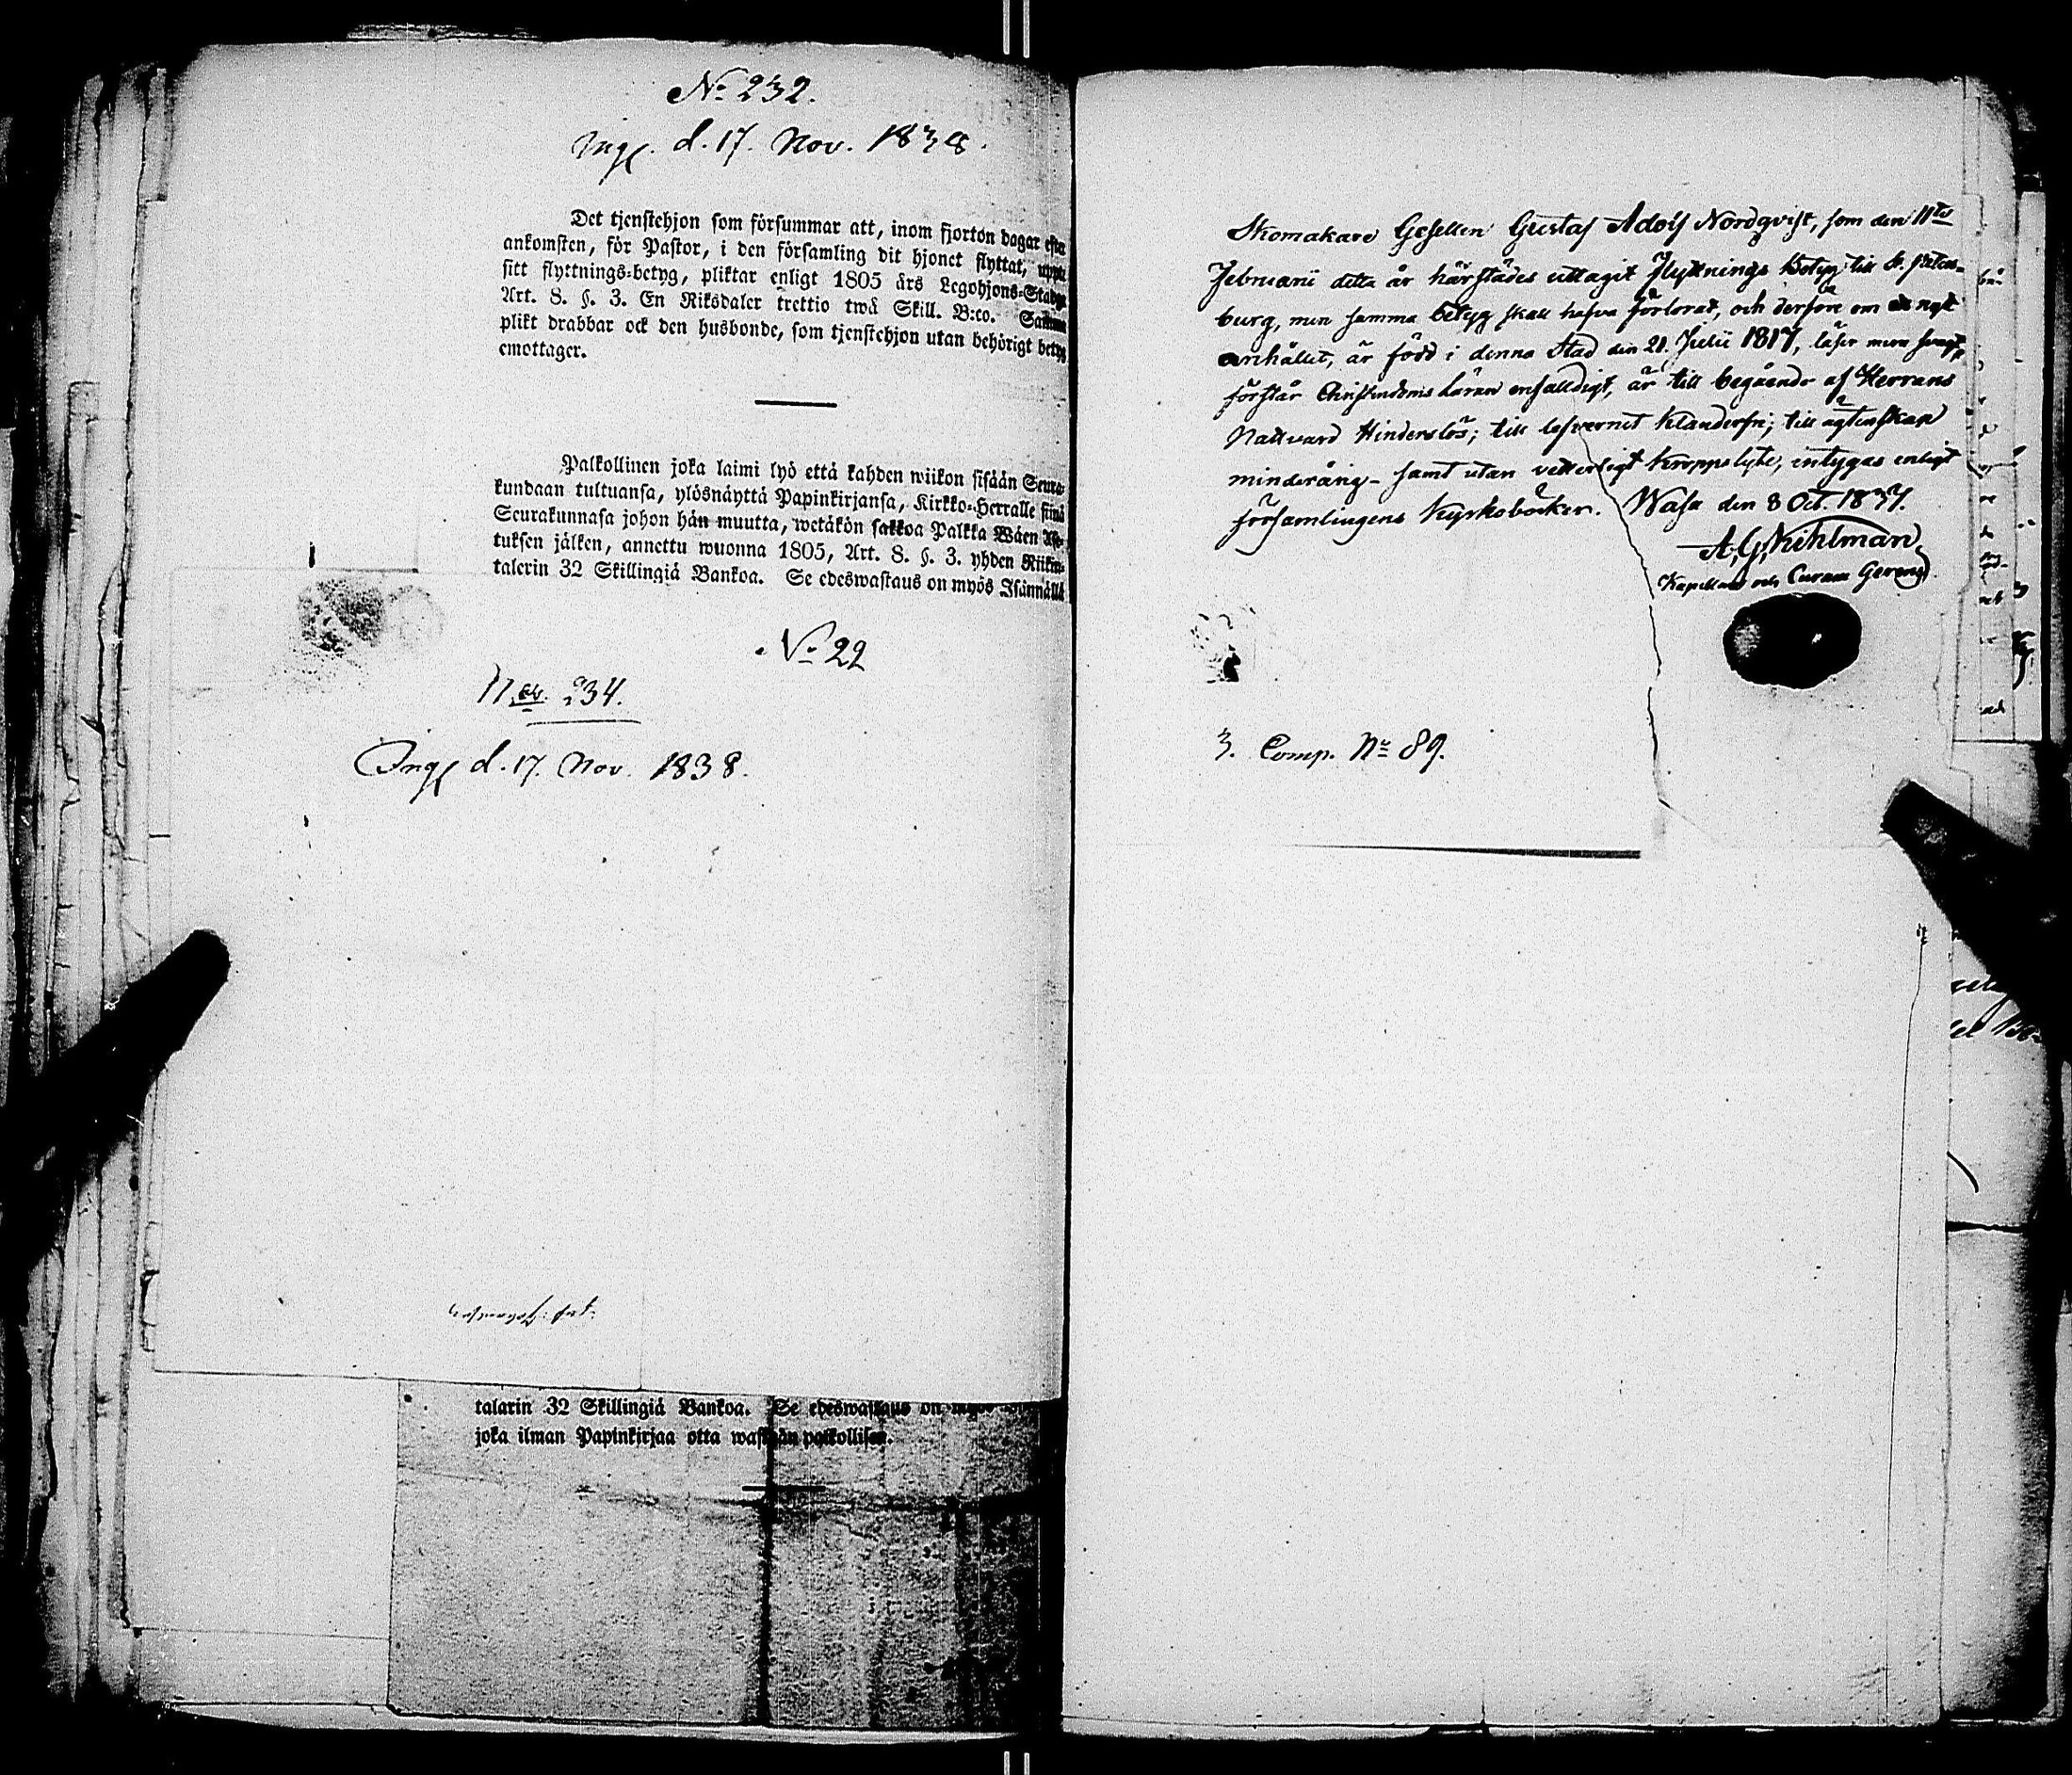 No 232.
Ing. d. 17. Nov. 1838.
Det tjenstehjon som försummar att, inom fjorton dagar efter
ankomsten, för Pastor, i den församling dit hjonet flyttat,
sitt flyttnings-betyg, pliktar enligt 1805 års Legohjons-Stadga
Art. 8. §. 3. En Riksdaler trettio twå Skill. B:co. Samma
plikt drabbar ock den husbonde, som tjenstehjon utan behörigt betyg
emottager.
Palkollinen joka laimi lyö että kahden wiikon sisään Seura-
kundaan tultuansa, ylösnäyttä Papinkirjansa, Kirkko-Herralle siinä
Seurakunnasa johon hän muutta, wetäkön sakkoa Palkka Wäen Ase-
tuksen jälken, annettu wuonna 1805, Art. 8. §. 3. yhden Riikin-
talerin 32 Skillingiä Bankoa. Se edeswastaus on myös Isännällä
No 22
234.
Ing d. 17. Nov. 1838.
talarin 32 Skillingiä Bankoa. Se edeswastaus on myös
joka ilman Papinkirjaa otta wastaan palkollisen.
Skomakare Gesellen Gustaf Adolf Nordqvist, som den 11te
Februarii detta år härstädes uttagit Flyttnings Betyg till St. Peters-
burg, men samma betyg skall hafva förlorat, och derföre om nytt
anhållit, är född i denna Stad den 21 Julii 1817, läser mern svagt,
förstår Christendoms Läran enfalldigt, är till begående af Herrans
Nattvard Hinderslös; till lefvernet Klanderfri; till ägtenskap
minderårig - samt utan vetterligt Kroppslyte, intygas enligt
församlingens Kyrkoböcker. Wasa den 8 Oct. 1837.
A. G. Kuhlman
Kapellan och Curam Gerens
3. Comp. No 89.